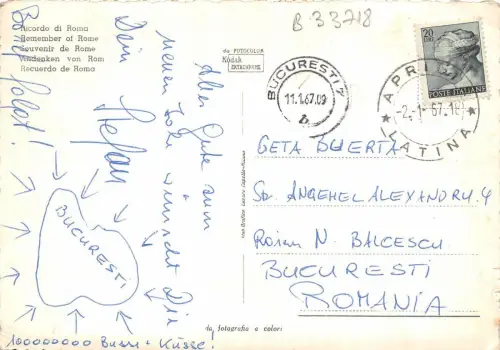 B 33718
Ricordo di Roma
Remember of Rome
Souvenir de Rome
Andenken von Rom
Recuerdo de Roma
da FOTOCOLOR
Kodak
EKTACHROME
Brief folgt!
Alles Gute zum
neuen Jahr wünscht Dir
Dein Stefan
BUCUREȘTI
100000000 Bussi + Küsse!
BUCURESTI
11.1.67.09
APRI
-2-1-67.18
LATINA
20 LIRE
POSTE ITALIANE
GETA BUERTA
Str. ANGHEL ALEXANDRU. 4
Raion N. BALCESCU
BUCURESTI
ROMANIA
da fotografia a colori